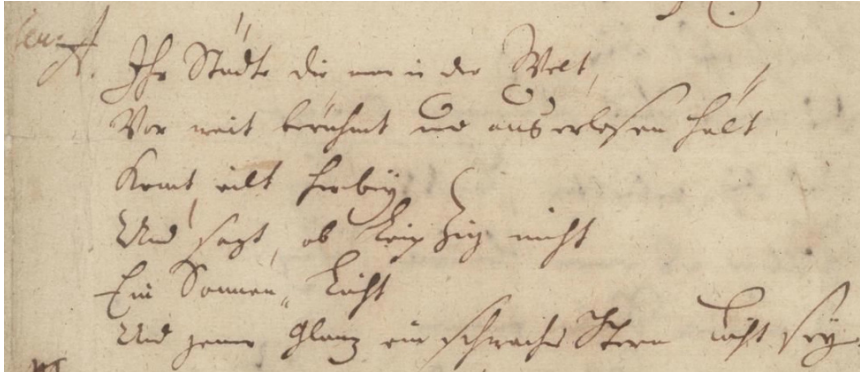 Ihr Städte die man in der Welt,
Vor weit berühmt und auserlesen hält
Komt, eilt herbey
Und sagt, ob Leipzig nicht
Ein Sonnen„ Licht
Und Glanz ein schwaches Stern Licht sey.